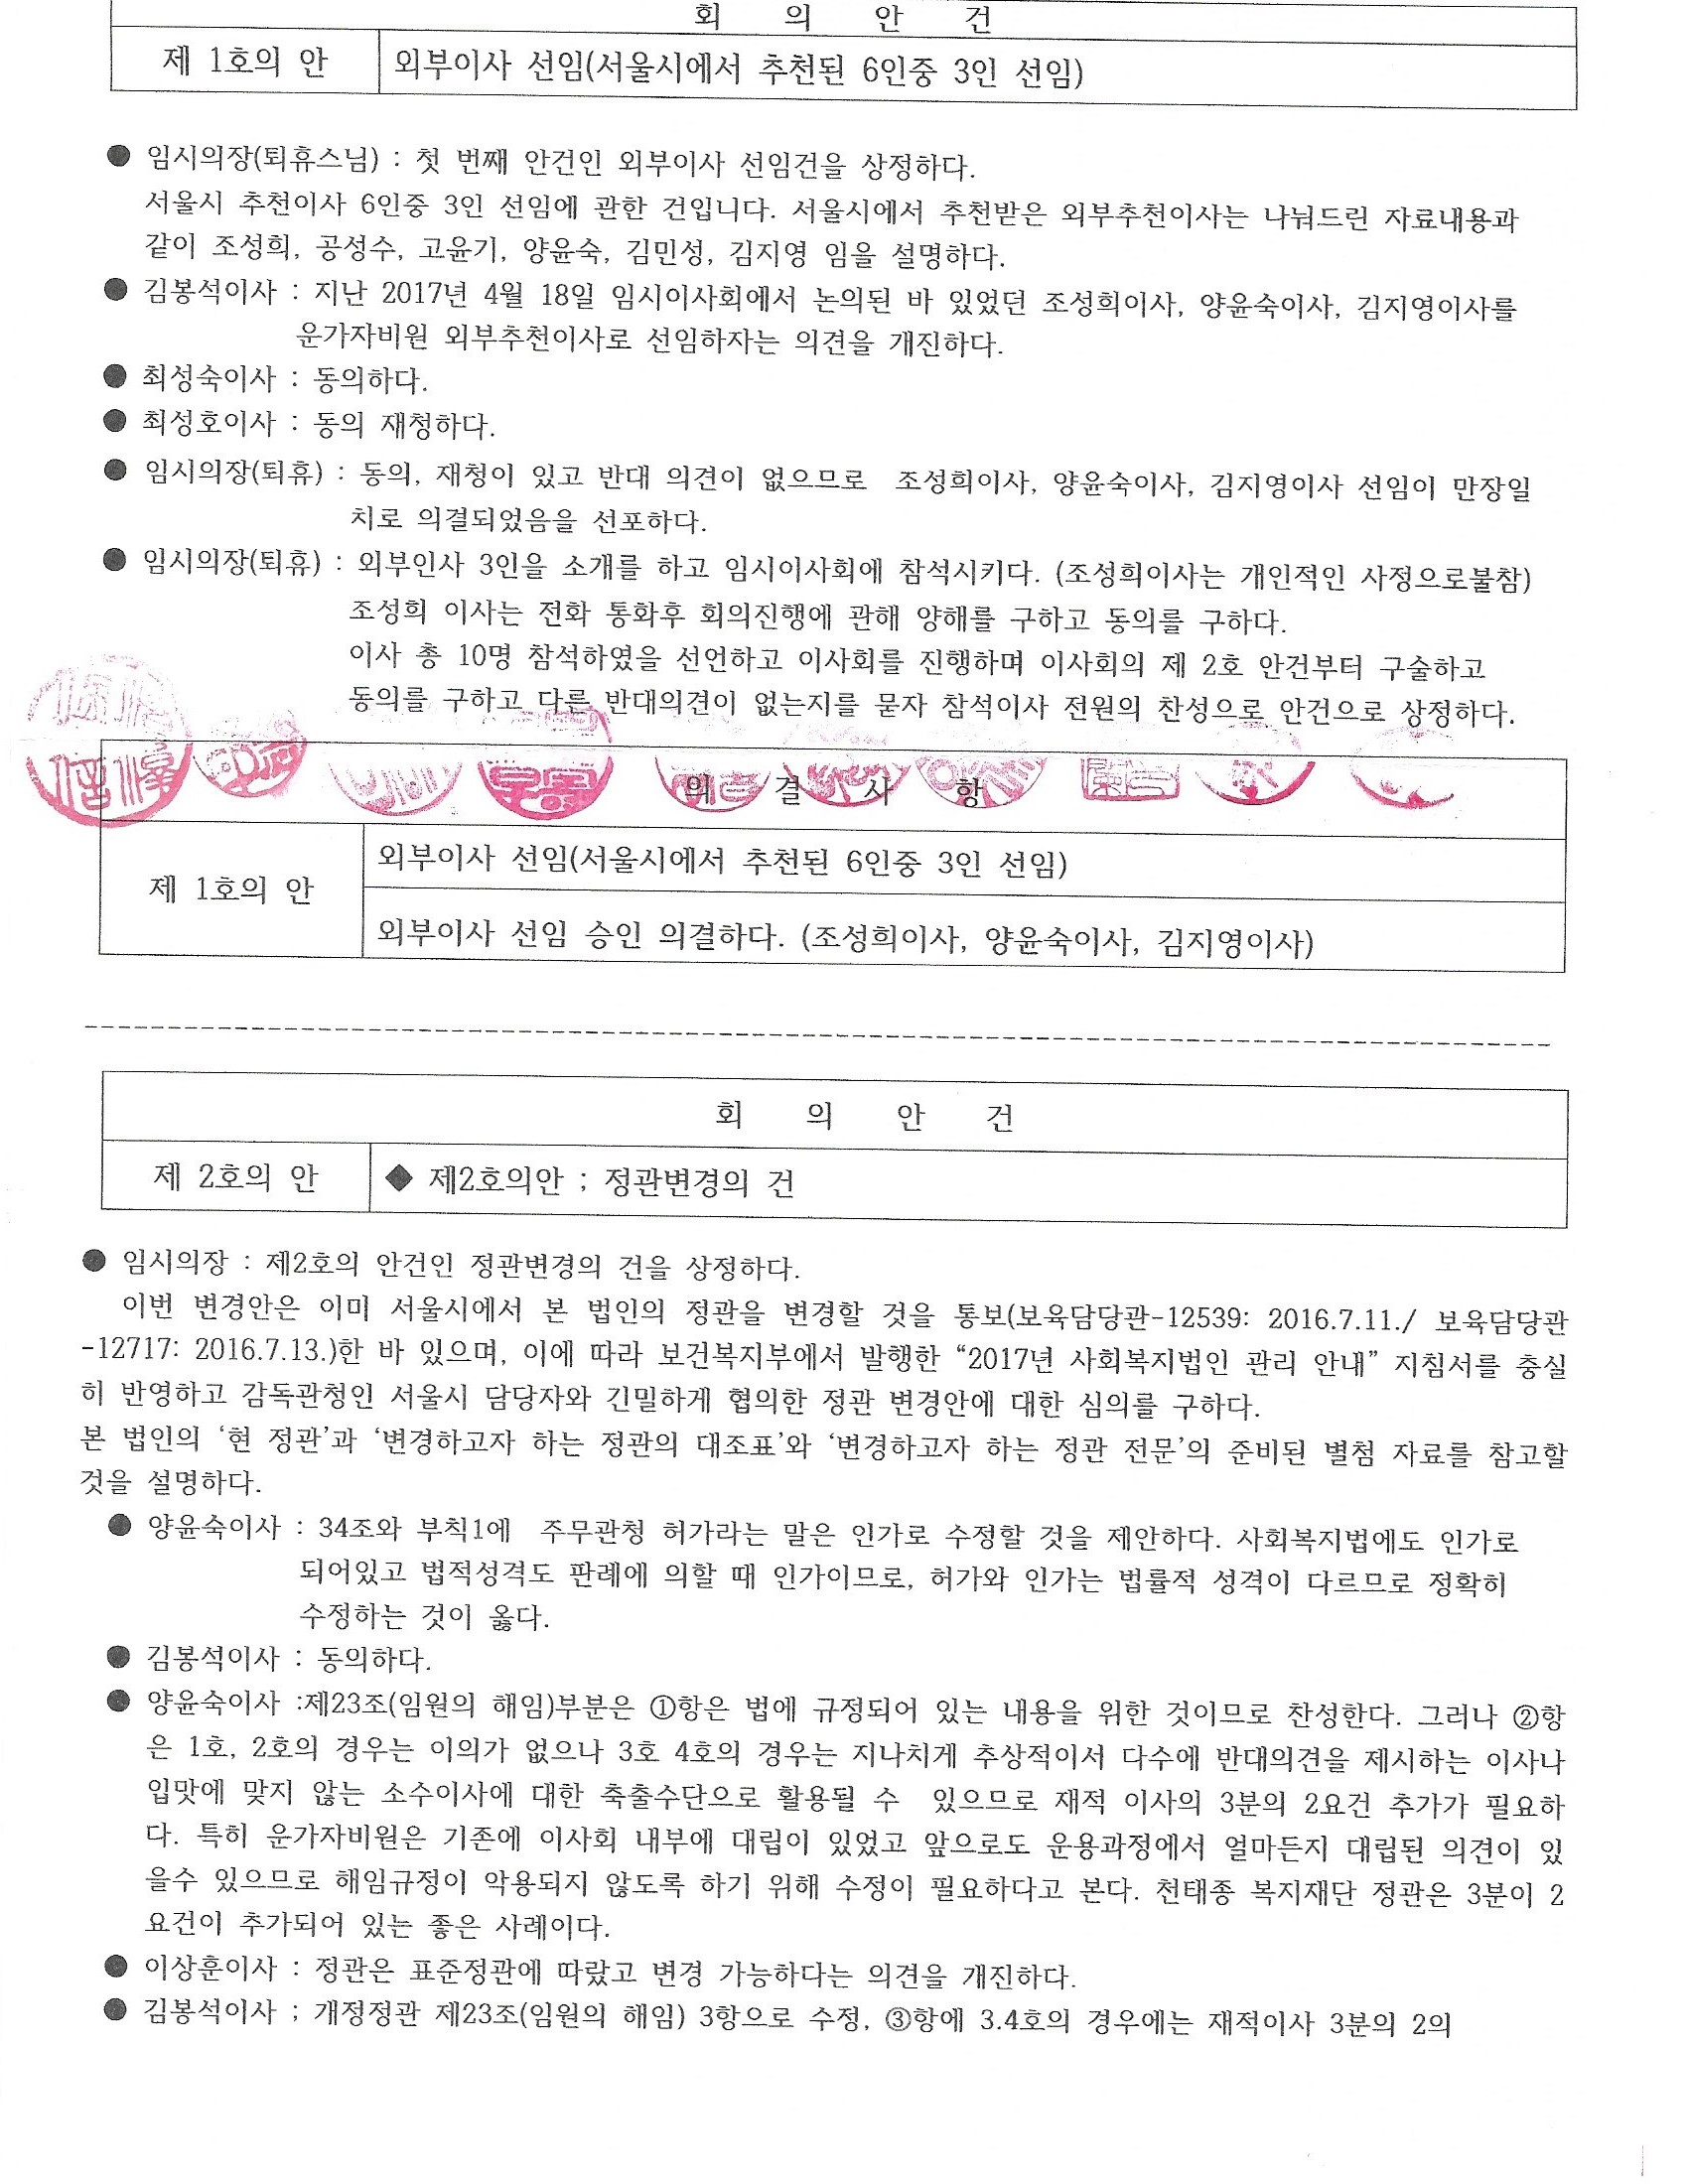 회 의 안 건
제 1호의 안 외부이사 선임(서울시에서 추천된 6인중 3인 선임)
● 임시의장(퇴휴스님) : 첫 번째 안건인 외부이사 선임건을 상정하다.
서울시 추천이사 6인중 3인 선임에 관한 건입니다. 서울시에서 추천받은 외부추천이사는 나눠드린 자료내용과
같이 조성희, 공성수, 고윤기, 양윤숙, 김민성, 김지영 임을 설명하다.
● 김봉석이사 : 지난 2017년 4월 18일 임시이사회에서 논의된 바 있었던 조성희이사, 양윤숙이사, 김지영이사를
운가자비원 외부추천이사로 선임하자는 의견을 개진하다.
● 최성숙이사 : 동의하다.
● 최성호이사 : 동의 재청하다.
● 임시의장(퇴휴) : 동의, 재청이 있고 반대 의견이 없으므로 조성희이사, 양윤숙이사, 김지영이사 선임이 만장일
치로 의결되었음을 선포하다.
● 임시의장(퇴휴) : 외부인사 3인을 소개를 하고 임시이사회에 참석시키다. (조성희이사는 개인적인 사정으로불참)
조성희 이사는 전화 통화후 회의진행에 관해 양해를 구하고 동의를 구하다.
이사 총 10명 참석하였을 선언하고 이사회를 진행하며 이사회의 제 2호 안건부터 구술하고
동의를 구하고 다른 반대의견이 없는지를 묻자 참석이사 전원의 찬성으로 안건으로 상정하다.
의 결 사 항
제 1호의 안 외부이사 선임(서울시에서 추천된 6인중 3인 선임)
외부이사 선임 승인 의결하다. (조성희이사, 양윤숙이사, 김지영이사)
회 의 안 건
제 2호의 안 ◆ 제2호의안 ; 정관변경의 건
● 임시의장 : 제2호의 안건인 정관변경의 건을 상정하다.
이번 변경안은 이미 서울시에서 본 법인의 정관을 변경할 것을 통보(보육담당관-12539: 2016.7.11./ 보육담당관
-12717: 2016.7.13.)한 바 있으며, 이에 따라 보건복지부에서 발행한 “2017년 사회복지법인 관리 안내” 지침서를 충실
히 반영하고 감독관청인 서울시 담당자와 긴밀하게 협의한 정관 변경안에 대한 심의를 구하다.
본 법인의 ‘현 정관’과 ‘변경하고자 하는 정관의 대조표’와 ‘변경하고자 하는 정관 전문’의 준비된 별첨 자료를 참고할
것을 설명하다.
● 양윤숙이사 : 34조와 부칙1에 주무관청 허가라는 말은 인가로 수정할 것을 제안하다. 사회복지법에도 인가로
되어있고 법적성격도 판례에 의할 때 인가이므로, 허가와 인가는 법률적 성격이 다르므로 정확히
수정하는 것이 옳다.
● 김봉석이사 : 동의하다.
● 양윤숙이사 :제23조(임원의 해임)부분은 ①항은 법에 규정되어 있는 내용을 위한 것이므로 찬성한다. 그러나 ②항
은 1호, 2호의 경우는 이의가 없으나 3호 4호의 경우는 지나치게 추상적이서 다수에 반대의견을 제시하는 이사나
입맛에 맞지 않는 소수이사에 대한 축출수단으로 활용될 수 있으므로 재적 이사의 3분의 2요건 추가가 필요하
다. 특히 운가자비원은 기존에 이사회 내부에 대립이 있었고 앞으로도 운용과정에서 얼마든지 대립된 의견이 있
을수 있으므로 해임규정이 악용되지 않도록 하기 위해 수정이 필요하다고 본다. 천태종 복지재단 정관은 3분이 2
요건이 추가되어 있는 좋은 사례이다.
● 이상훈이사 : 정관은 표준정관에 따랐고 변경 가능하다는 의견을 개진하다.
● 김봉석이사 ; 개정정관 제23조(임원의 해임) 3항으로 수정, ③항에 3.4호의 경우에는 재적이사 3분의 2의